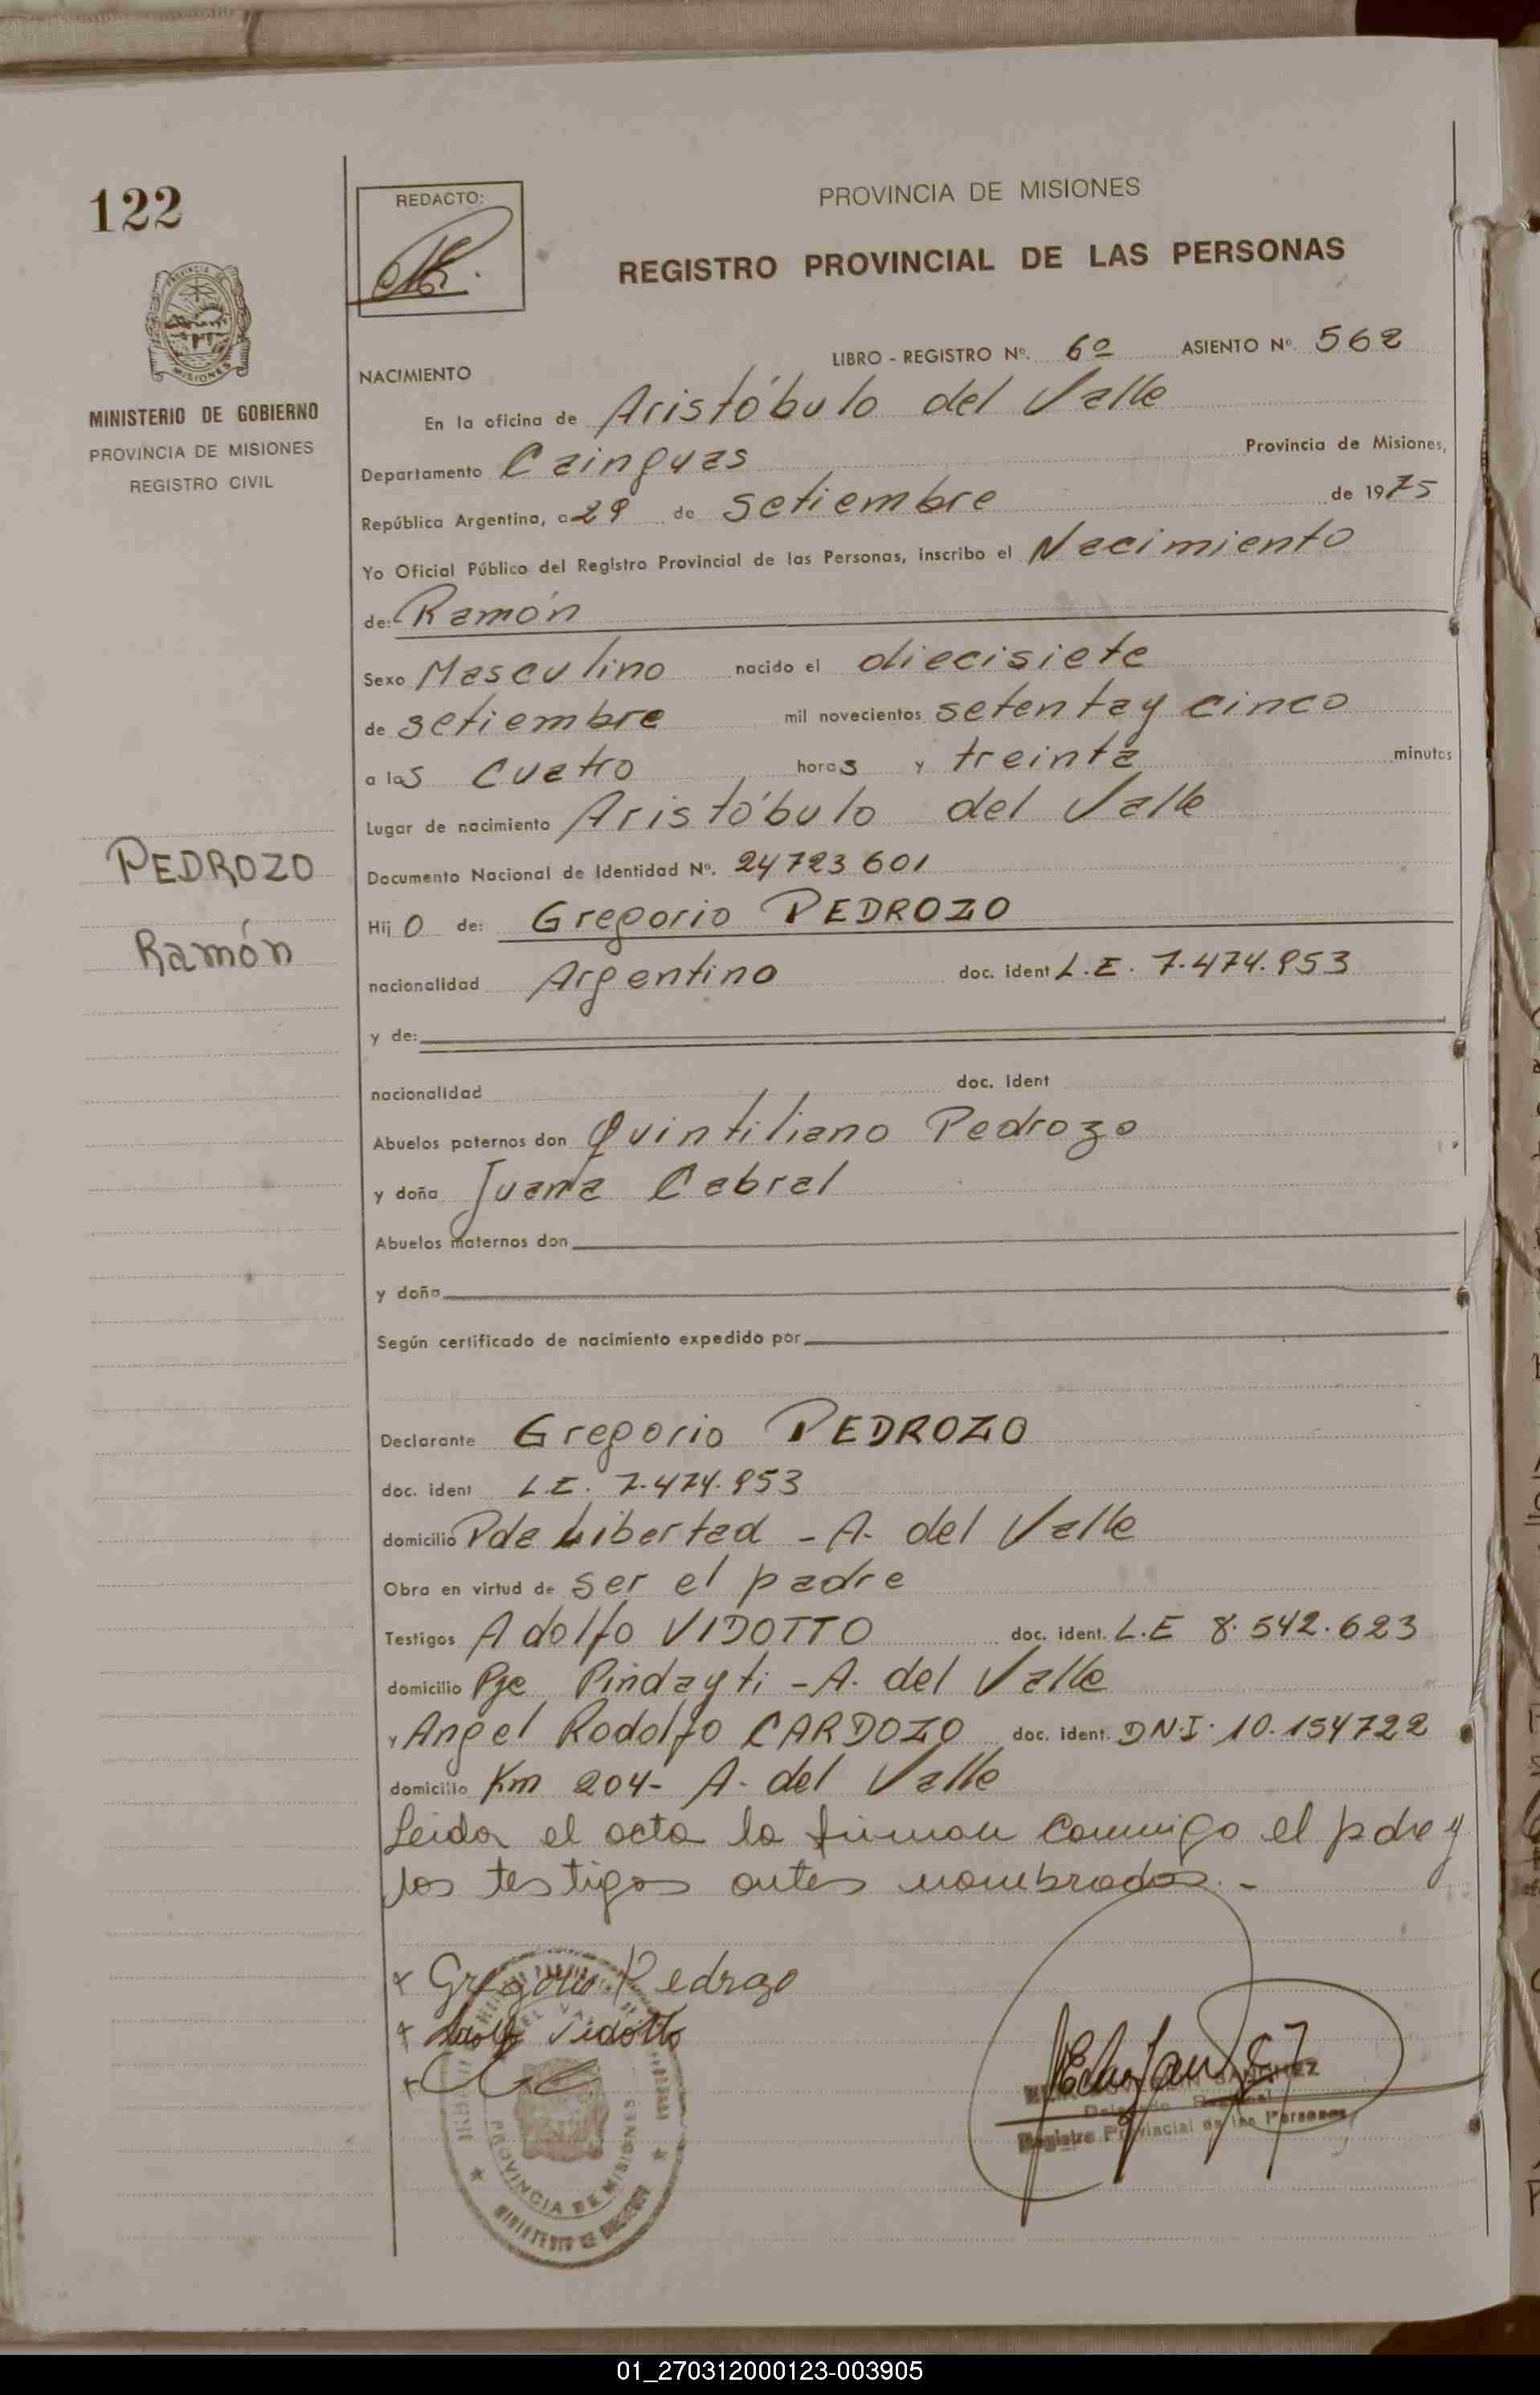 122
PROVINCIA DE MISIONES
MINISTERIO DE GOBIERNO
PROVINCIA DE MISIONES
REGISTRO CIVIL
PEDROZO
Ramón
REDACTO:
PROVINCIA DE MISIONES
REGISTRO PROVINCIAL DE LAS PERSONAS
LIBRO - REGISTRO Nº. 6º ASIENTO Nº. 562
NACIMIENTO
En la oficina de Aristóbulo del Valle
Departamento Cainguas Provincia de Misiones,
República Argentina, a 29 de setiembre de 1975
Yo Oficial Público del Registro Provincial de las Personas, inscribo el Nacimiento
de: Ramón
Sexo Masculino nacido el diecisiete
de setiembre mil novecientos setenta y cinco
a las cuatro horas y treinta minutos
Lugar de nacimiento Aristóbulo del Valle
Documento Nacional de Identidad Nº. 24723601
Hijo de: Gregorio PEDROZO
nacionalidad Argentino doc. ident L.E. 7.474.953
y de:
nacionalidad doc. ident
Abuelos paternos don Quintiliano Pedrozo
y doña Juana Cabral
Abuelos maternos don
y doña
Según certificado de nacimiento expedido por
Declarante Gregorio PEDROZO
doc. ident L.E. 7.474.953
domicilio Pda Libertad - A. del Valle
Obra en virtud de ser el padre
Testigos Adolfo VIDOTTO doc. ident. L.E 8.542.623
domicilio Pje Pindayti - A. del Valle
y Angel Rodolfo CARDOZO doc. ident. DN.I. 10.154722
domicilio Km 204- A. del Valle
Leida el acta la firman conmigo el pdre y
los testigos antes nombrados.-
Gregorio Pedrozo
Adolfo Vidotto
SANCHEZ
Delegado Regional
Registro Provincial de las Personas
PROVINCIA DE MISIONES
MINISTERIO DE GOBIERNO
01_270312000123-003905